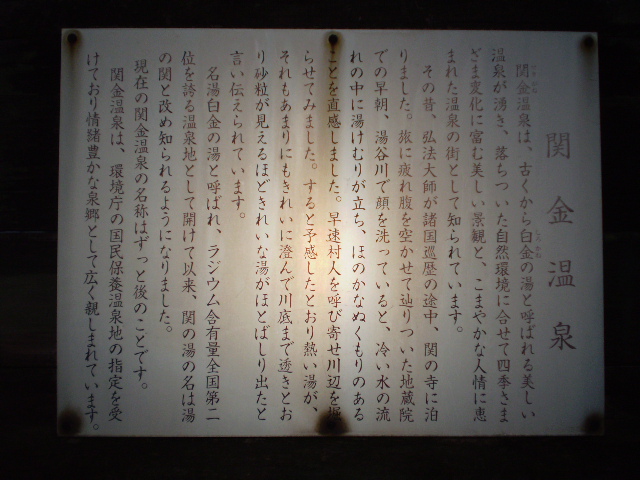 関金温泉
関金温泉は、古くから白金の湯と呼ばれる美しい
せき がね
しろ がね
温泉が湧き、落ちついた自然環境に合せて四季さま
ざま変化に富む美しい景観と、こまやかな人情に恵
まれた温泉の街として知られています。
その昔、弘法大師が諸国巡歴の途中、関の寺に泊
りました。旅に疲れ腹を空かせて辿りついた地蔵院
での早朝、湯谷川で顔を洗っていると、冷い水の流
れの中に湯けむりが立ち、ほのかなぬくもりのある
ことを直感しました。早速村人を呼び寄せ川辺を掘
らせてみました。すると予感したとおり熱い湯が、
それもあまりにもきれいに澄んで川底まで透きとお
り砂粒が見えるほどきれいな湯がほとばしり出たと
言い伝えられています。
名湯白金の湯と呼ばれ、ラジウム含有量全国第二
位を誇る温泉地として開けて以来、関の湯の名は湯
の関と改め知られるようになりました。
現在の関金温泉の名称はずっと後のことです。
関金温泉は、環境庁の国民保養温泉地の指定を受
けており情緒豊かな泉郷として広く親しまれています。